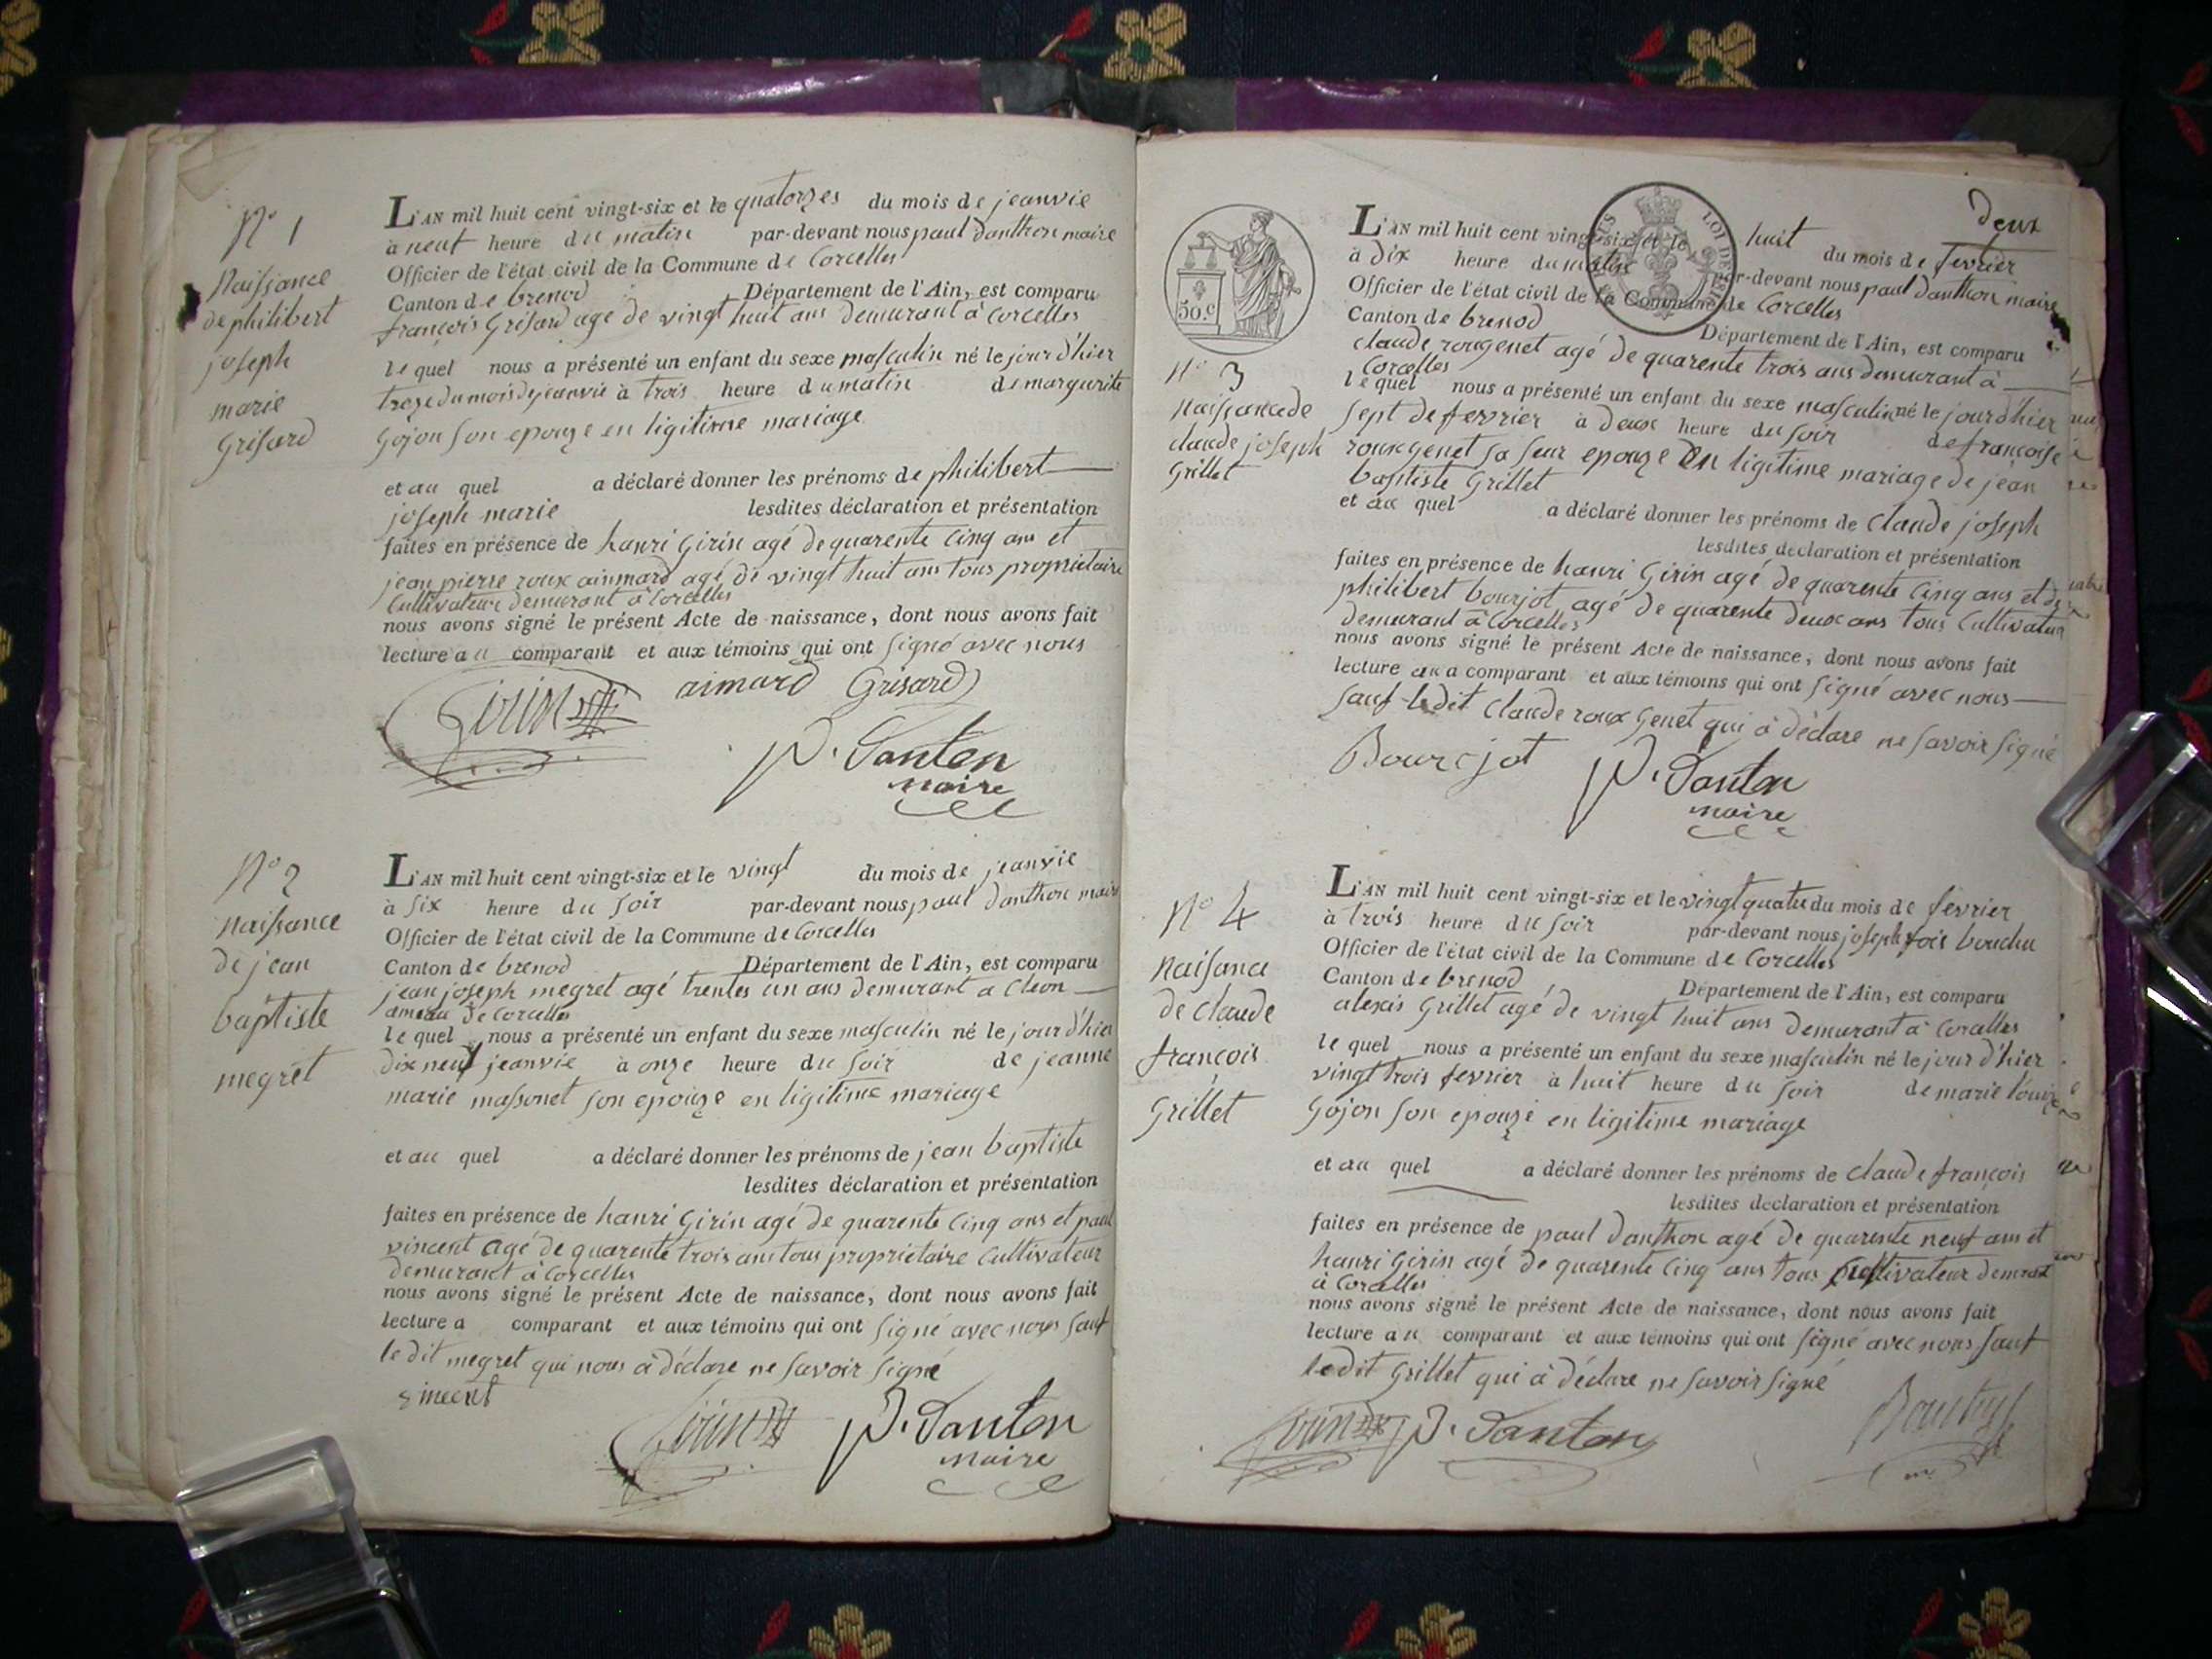 N° 1
Naissance
de philibert
joseph
marie
Grisard
L'AN mil huit cent vingt-six et le quatorzes du mois de jeanvie
à neuf heure du matin par-devant nous paul danthon maire
Officier de l'état civil de la Commune de Corcelles
Canton de brenod Département de l'Ain, est comparu
françois Grisard age de vingt huit ans demurant à Corcelles
le quel nous a présenté un enfant du sexe masculin né le jour d'hier
treze du mois de jeanvie à trois heure du matin de margurite
Gojon son epouze en ligitime mariage
et au quel a déclaré donner les prénoms de philibert
joseph marie lesdites déclaration et présentation
faites en présence de hanri Girin agé de quarente Cinq ans et
jean pierre roux ainmard agé de vingt huit ans tous propriétaire
Cultivateur demurant à Corcelles
nous avons signé le présent Acte de naissance, dont nous avons fait
lecture au comparant et aux témoins qui ont signé avec nous
Girin aimard Grisard
P. Danton
maire
N° 2
Naissance
de jean
baptiste
megret
L'AN mil huit cent vingt-six et le vingt du mois de jeanvie
à six heure du soir par-devant nous paul danthon maire
Officier de l'état civil de la Commune de Corcelles
Canton de brenod Département de l'Ain, est comparu
jean joseph megret agé trentes un ans demurant a Cleon
ameau de Corcelles
le quel nous a présenté un enfant du sexe masculin né le jour d'hier
dix neuf jeanvie à onze heure du soir de jeanne
marie massonet son epouze en ligitime mariage
et au quel a déclaré donner les prénoms de jean baptiste
lesdites déclaration et présentation
faites en présence de hanri Girin agé de quarente Cinq ans et paul
vincent agé de quarente trois ans tous propriétaire Cultivateur
demurant à Corcelles
nous avons signé le présent Acte de naissance, dont nous avons fait
lecture a comparant et aux témoins qui ont signé avec nous sauf
le dit megret qui nous à déclare ne savoir signé
vincent
Girin P. Danton
maire
deux
50.c
LOI DE
N° 3
Naissance de
claude joseph
Grillet
L'AN mil huit cent vingt-six et le huit du mois de fevrier
à dix heure du matin par-devant nous paul danthon maire
Officier de l'état civil de la Commune de Corcelles
Canton de brenod Département de l'Ain, est comparu
claude rougenet agé de quarente trois ans demurant à
Corcelles
le quel nous a présenté un enfant du sexe masculin né le jour d'hier
sept de fevrier à deux heure du soir de françoise
roux genet sa seur epouze En ligitime mariage de jean
baptiste Grillet
et au quel a déclaré donner les prénoms de Claude joseph
lesdites déclaration et présentation
faites en présence de hanri Girin agé de quarente Cinq ans et de
philibert bourjot agé de quarente deux ans tous Cultivateur
demurant à Corcelles
nous avons signé le présent Acte de naissance, dont nous avons fait
lecture au a comparant et aux témoins qui ont signé avec nous
sauf le dit Claude roux Genet qui à déclare ne savoir signé
Bourcjot P. Danton
maire
N° 4
Naisance
de Claude
françois
Grillet
L'AN mil huit cent vingt-six et le vingt quatre du mois de fevrier
à trois heure du soir par-devant nous joseph bouchu
Officier de l'état civil de la Commune de Corcelles
Canton de brenod Département de l'Ain, est comparu
alexis Grillet agé de vingt huit ans demurant à Corcelles
le quel nous a présenté un enfant du sexe masculin né le jour d'hier
vingt trois fevrier à huit heure du soir de marie louize
Gojon son epouze en ligitime mariage
et au quel a déclaré donner les prénoms de Claude françois
lesdites déclaration et présentation
faites en présence de paul danthon agé de quarente neuf ans et
hanri Girin agé de quarente Cinq ans tous Cultivateur demurant
à Corcelles
nous avons signé le présent Acte de naissance, dont nous avons fait
lecture au comparant et aux témoins qui ont signé avec nous sauf
le dit Grillet qui à déclare ne savoir signé
Girin P. Danton